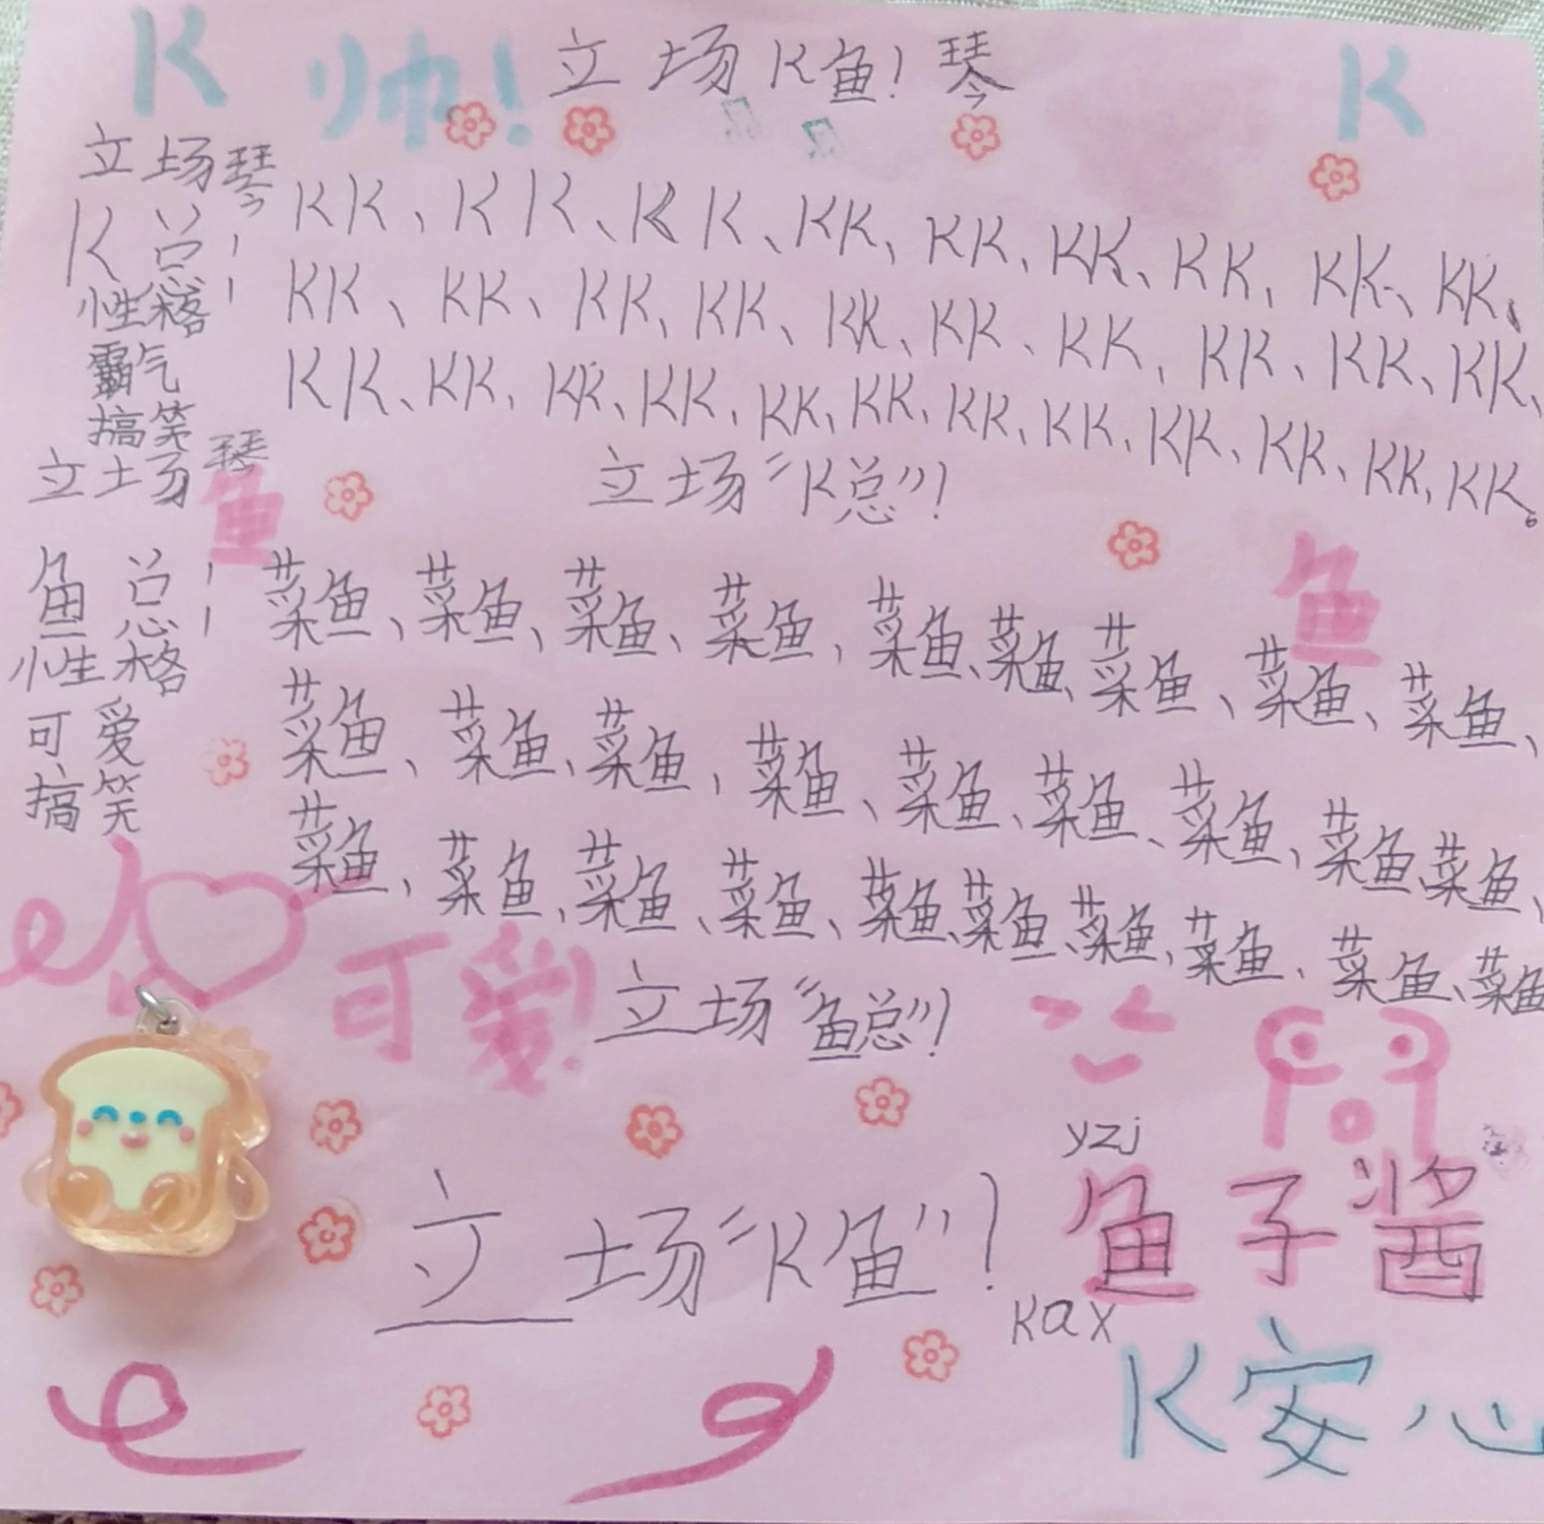 K 帅！ 立场K鱼！琴 K
立场琴
K总！
性格！
霸气
搞笑
KK、KK、KK、KK、KK、KK、KK、KK、KK、
KK、KK、KK、KK、KK、KK、KK、KK、KK、KK、
KK、KK、KK、KK、KK、KK、KK、KK、KK、KK、KK、KK。
立场琴
鱼
立场“K总”！
鱼
鱼总！
性格！
可爱
搞笑
菜鱼、菜鱼、菜鱼、菜鱼、菜鱼、菜鱼、菜鱼、菜鱼、菜鱼、
菜鱼、菜鱼、菜鱼、菜鱼、菜鱼、菜鱼、菜鱼、菜鱼、菜鱼、
菜鱼、菜鱼、菜鱼、菜鱼、菜鱼、菜鱼、菜鱼、菜鱼、菜鱼、菜鱼
可爱！
立场“鱼总”！
yzj
立场“K鱼”！
鱼子酱
Kax
K安心